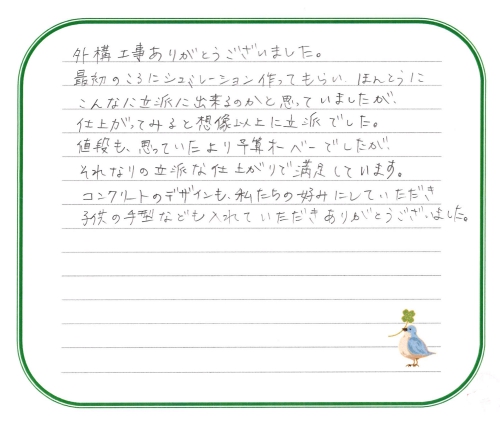 外構工事ありがとうございました。
最初のころにシュミレーション作ってもらい、ほんとうに
こんなに立派に出来るのかと思っていましたが、
仕上がってみると想像以上に立派でした。
値段も、思っていたより予算オーバーでしたが、
それなりの立派な仕上がりで満足しています。
コンクリートのデザインも、私たちの好みにしていただき
子供の手型なども入れていただきありがとうございました。